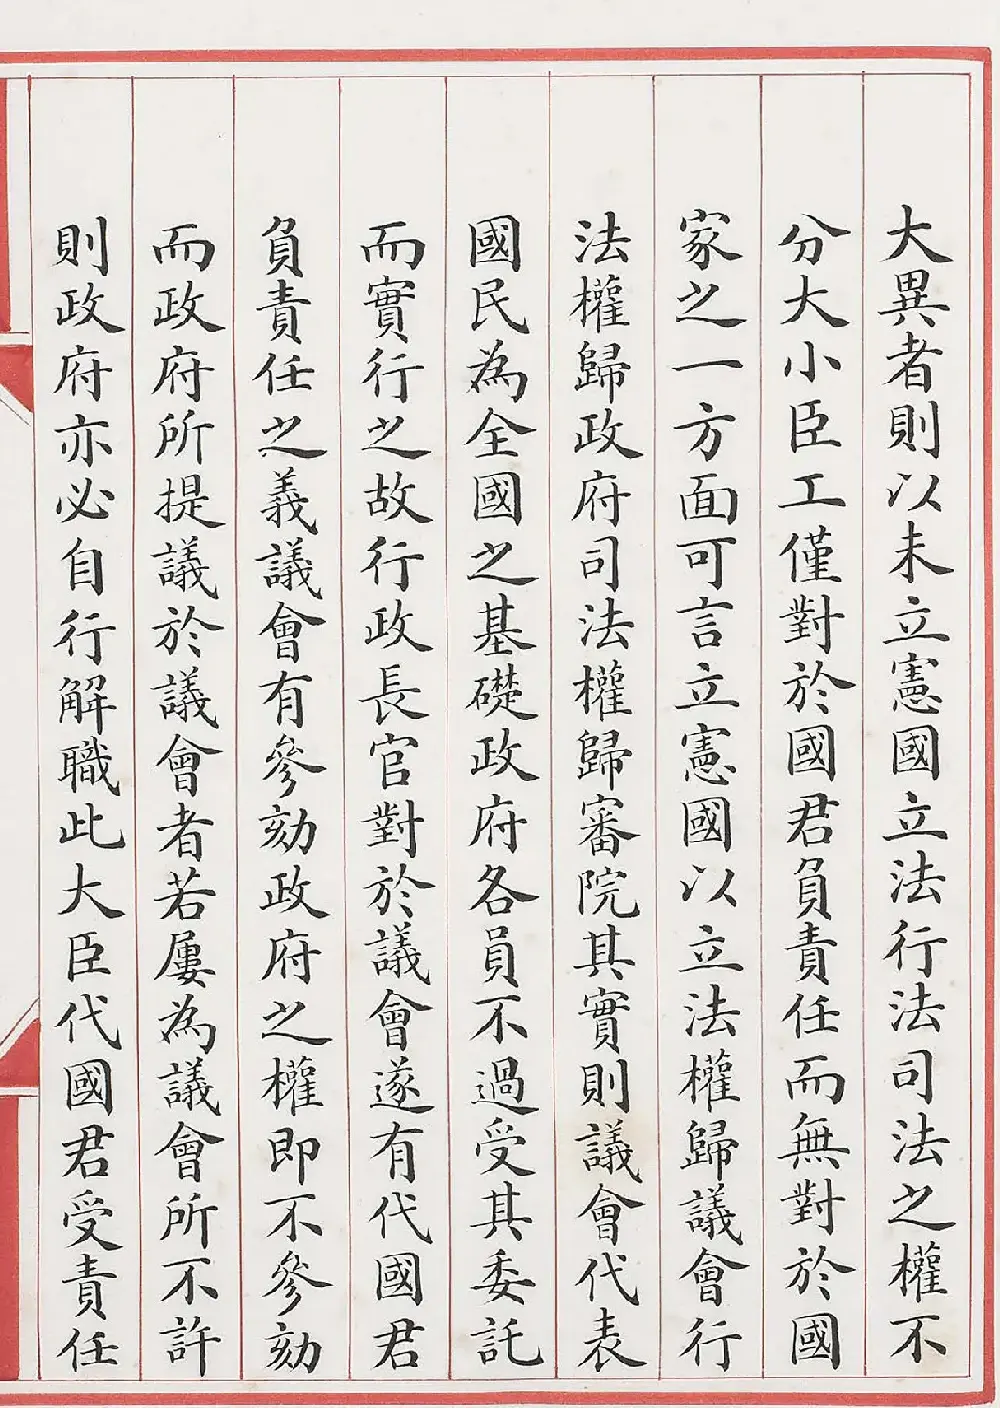 大異者則以未立憲國立法行法司法之權不
分大小臣工僅對於國君負責任而無對於國
家之一方面可言立憲國以立法權歸議會行
法權歸政府司法權歸審院其實則議會代表
國民為全國之基礎政府各員不過受其委託
而實行之故行政長官對於議會遂有代國君
負責任之義議會有參劾政府之權即不參劾
而政府所提議於議會者若屢為議會所不許
則政府亦必自行解職此大臣代國君受責任